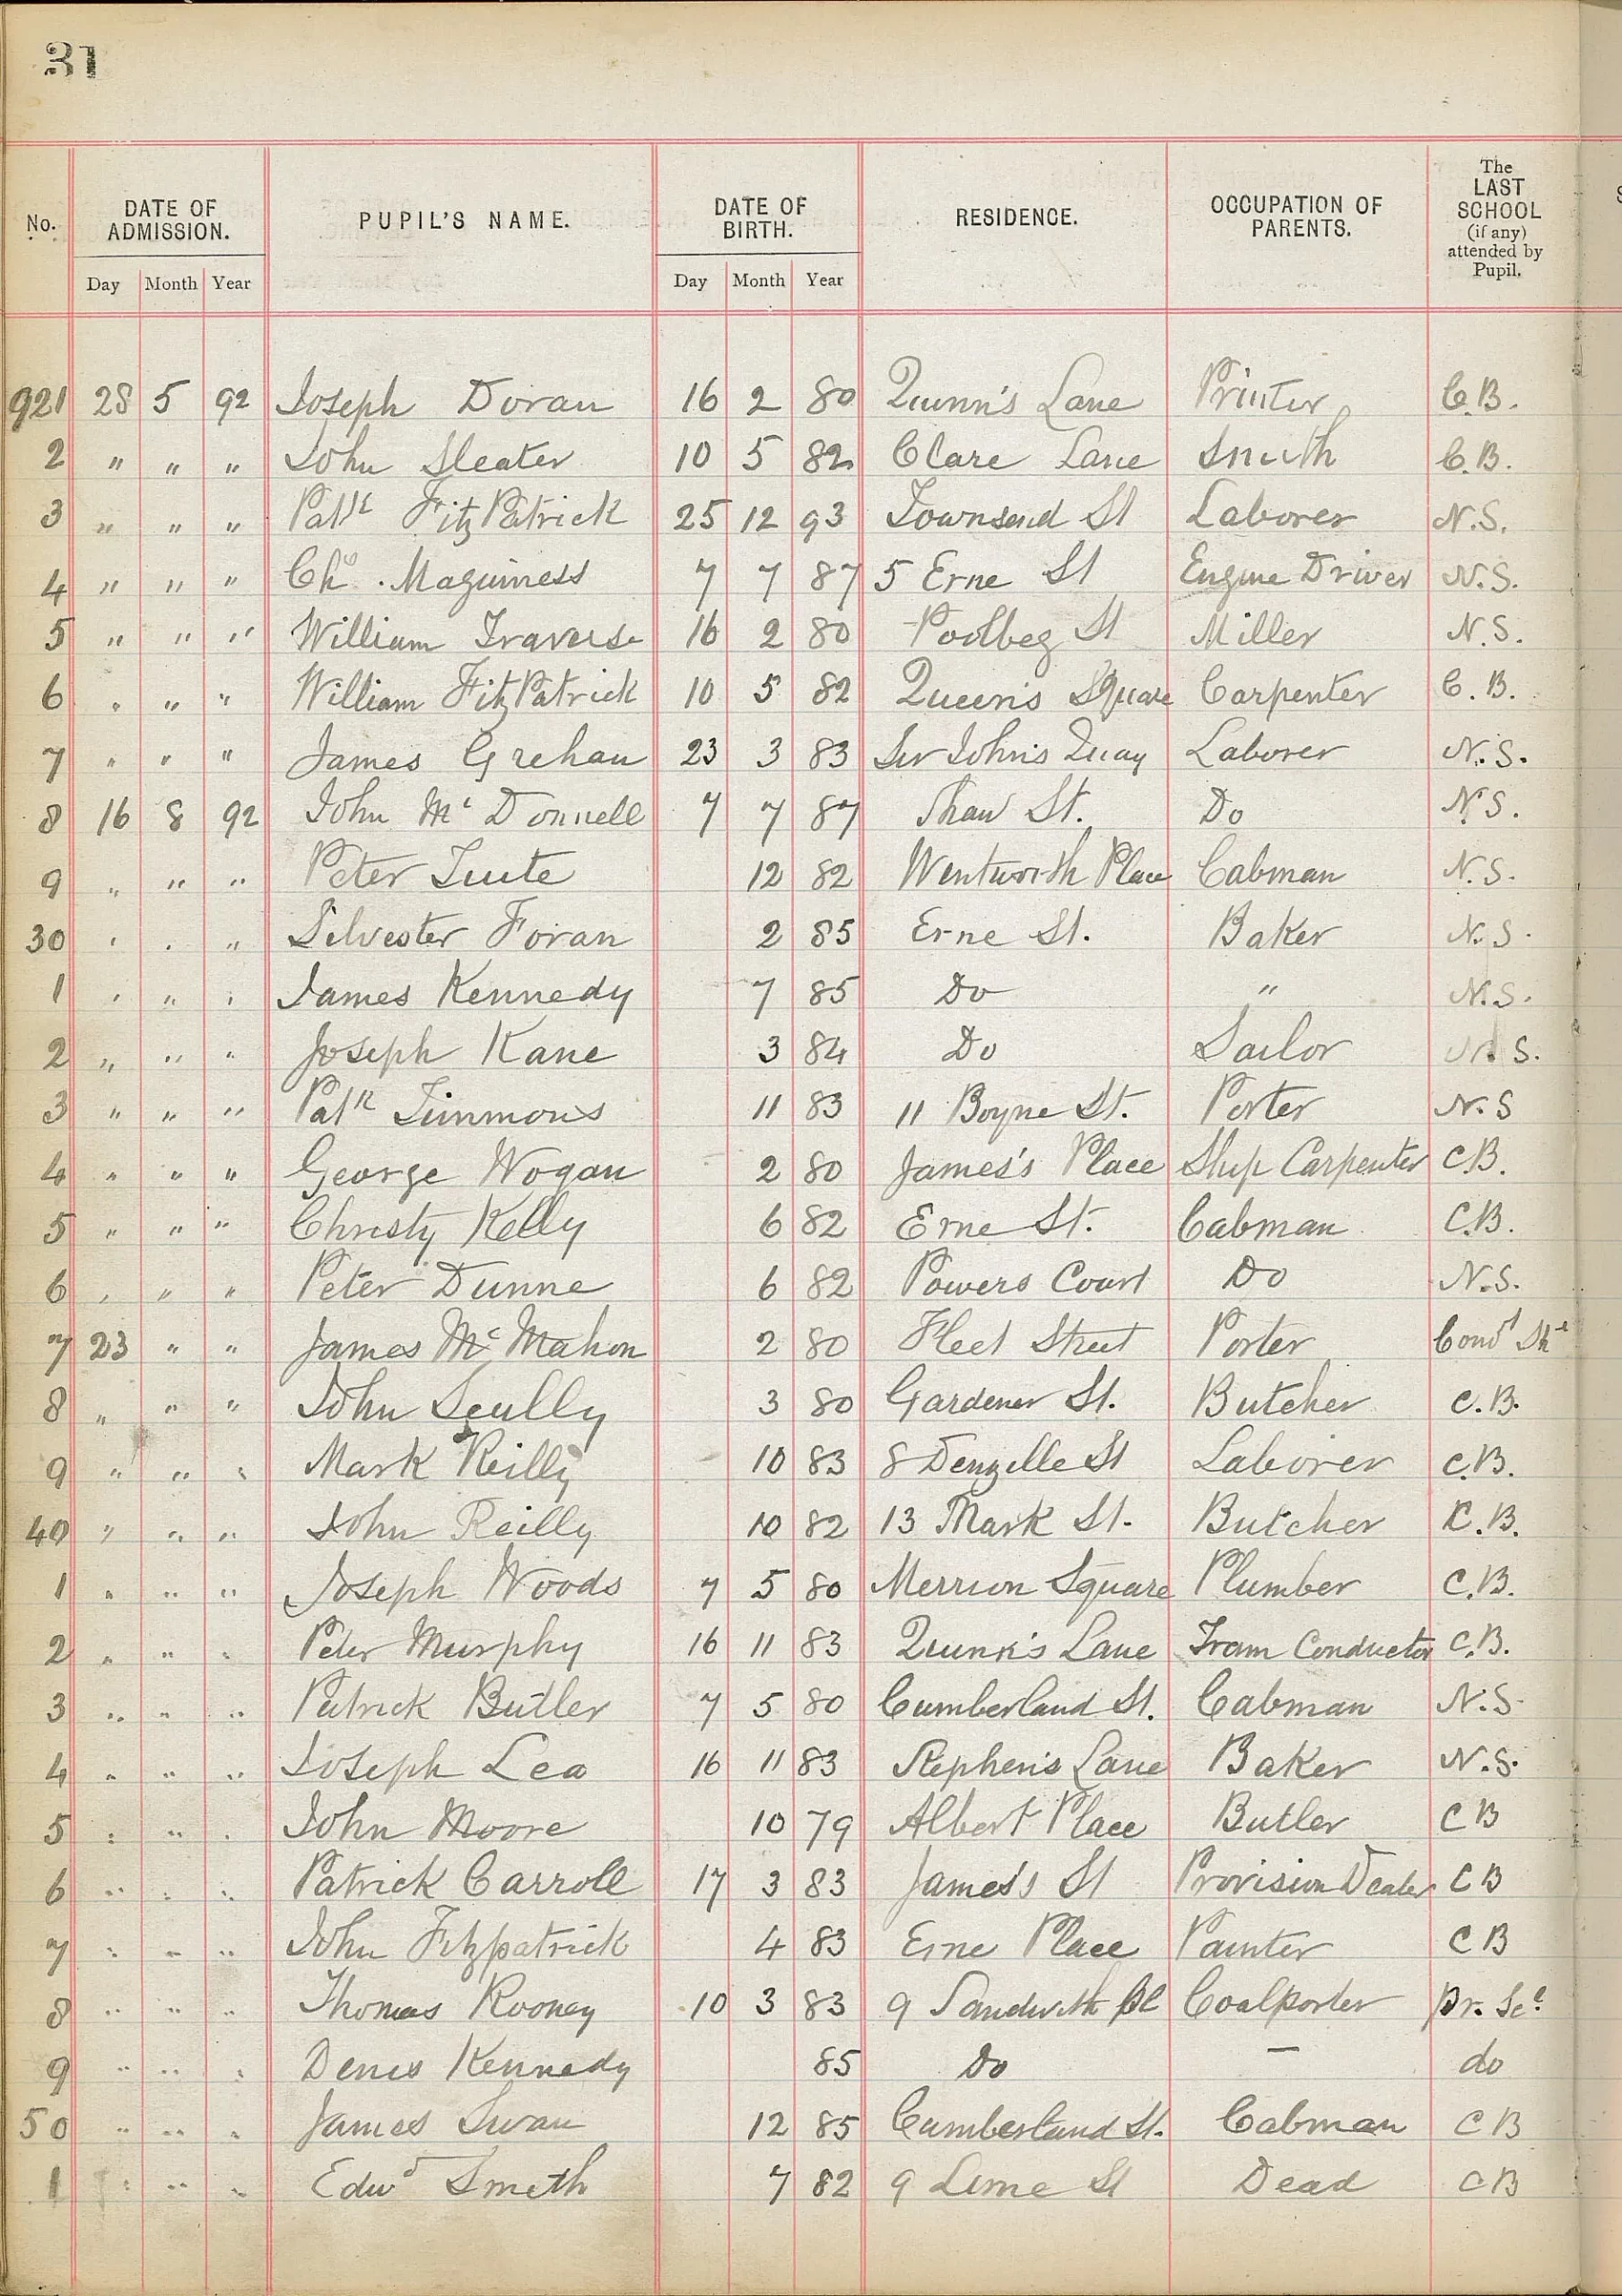 31
No. DATE OF ADMISSION. PUPIL'S NAME. DATE OF BIRTH. RESIDENCE. OCCUPATION OF PARENTS. The LAST SCHOOL (if any) attended by Pupil.
Day Month Year Day Month Year
921 28 5 92 Joseph Doran 16 2 80 Quinn's Lane Printer C.B.
2 " " " John Sleater 10 5 82 Clare Lane Smith C.B.
3 " " " Patk FitzPatrick 25 12 93 Townsend St Laborer N.S.
4 " " " Chs. Maguiness 7 7 87 5 Erne St Engine Driver N.S.
5 " " " William Traverse 16 2 80 Poolbeg St Miller N.S.
6 " " " William FitzPatrick 10 5 82 Queen's Square Carpenter C.B.
7 " " " James Grehan 23 3 83 Sir John's Quay Laborer N.S.
8 16 8 92 John McDonnell 7 7 87 Shaw St. Do N.S.
9 " " " Peter Tuite 12 82 Wentworth Place Cabman N.S.
30 " " " Silvester Foran 2 85 Erne St. Baker N.S.
1 " " " James Kennedy 7 85 Do " N.S.
2 " " " Joseph Kane 3 84 Do Sailor N.S.
3 " " " Patk Timmons 11 83 11 Boyne St. Porter N.S
4 " " " George Wogan 2 80 James's Place Ship Carpenter C.B.
5 " " " Christy Kelly 6 82 Erne St. Cabman C.B.
6 " " " Peter Dunne 6 82 Powers Court Do N.S.
7 23 " " James McMahon 2 80 Fleet Street Porter
8 " " " John Scully 3 80 Gardener St. Butcher C.B.
9 " " " Mark Reilly 10 83 8 Denzelle St Laborer C.B.
40 " " " John Reilly 10 82 13 Mark St. Butcher C.B.
1 " " " Joseph Woods 7 5 80 Merrion Square Plumber C.B.
2 " " " Peter Murphy 16 11 83 Quinn's Lane Tram Conductor C.B.
3 " " " Patrick Butler 7 5 80 Cumberland St. Cabman N.S.
4 " " " Joseph Lea 16 11 83 Stephen's Lane Baker N.S.
5 " " " John Moore 10 79 Albert Place Butler C B
6 " " " Patrick Carroll 17 3 83 James's St Provision Dealer C B
7 " " " John Fitzpatrick 4 83 Erne Place Painter C B
8 " " " Thomas Rooney 10 3 83 9 Sandwith Pl Coalporter Pr. Scl
9 " " " Denis Kennedy 85 Do — do
50 " " " James Swan 12 85 Cumberland St. Cabman C B
1 " " " Edwd Smeth 7 82 9 Lime St Dead C B